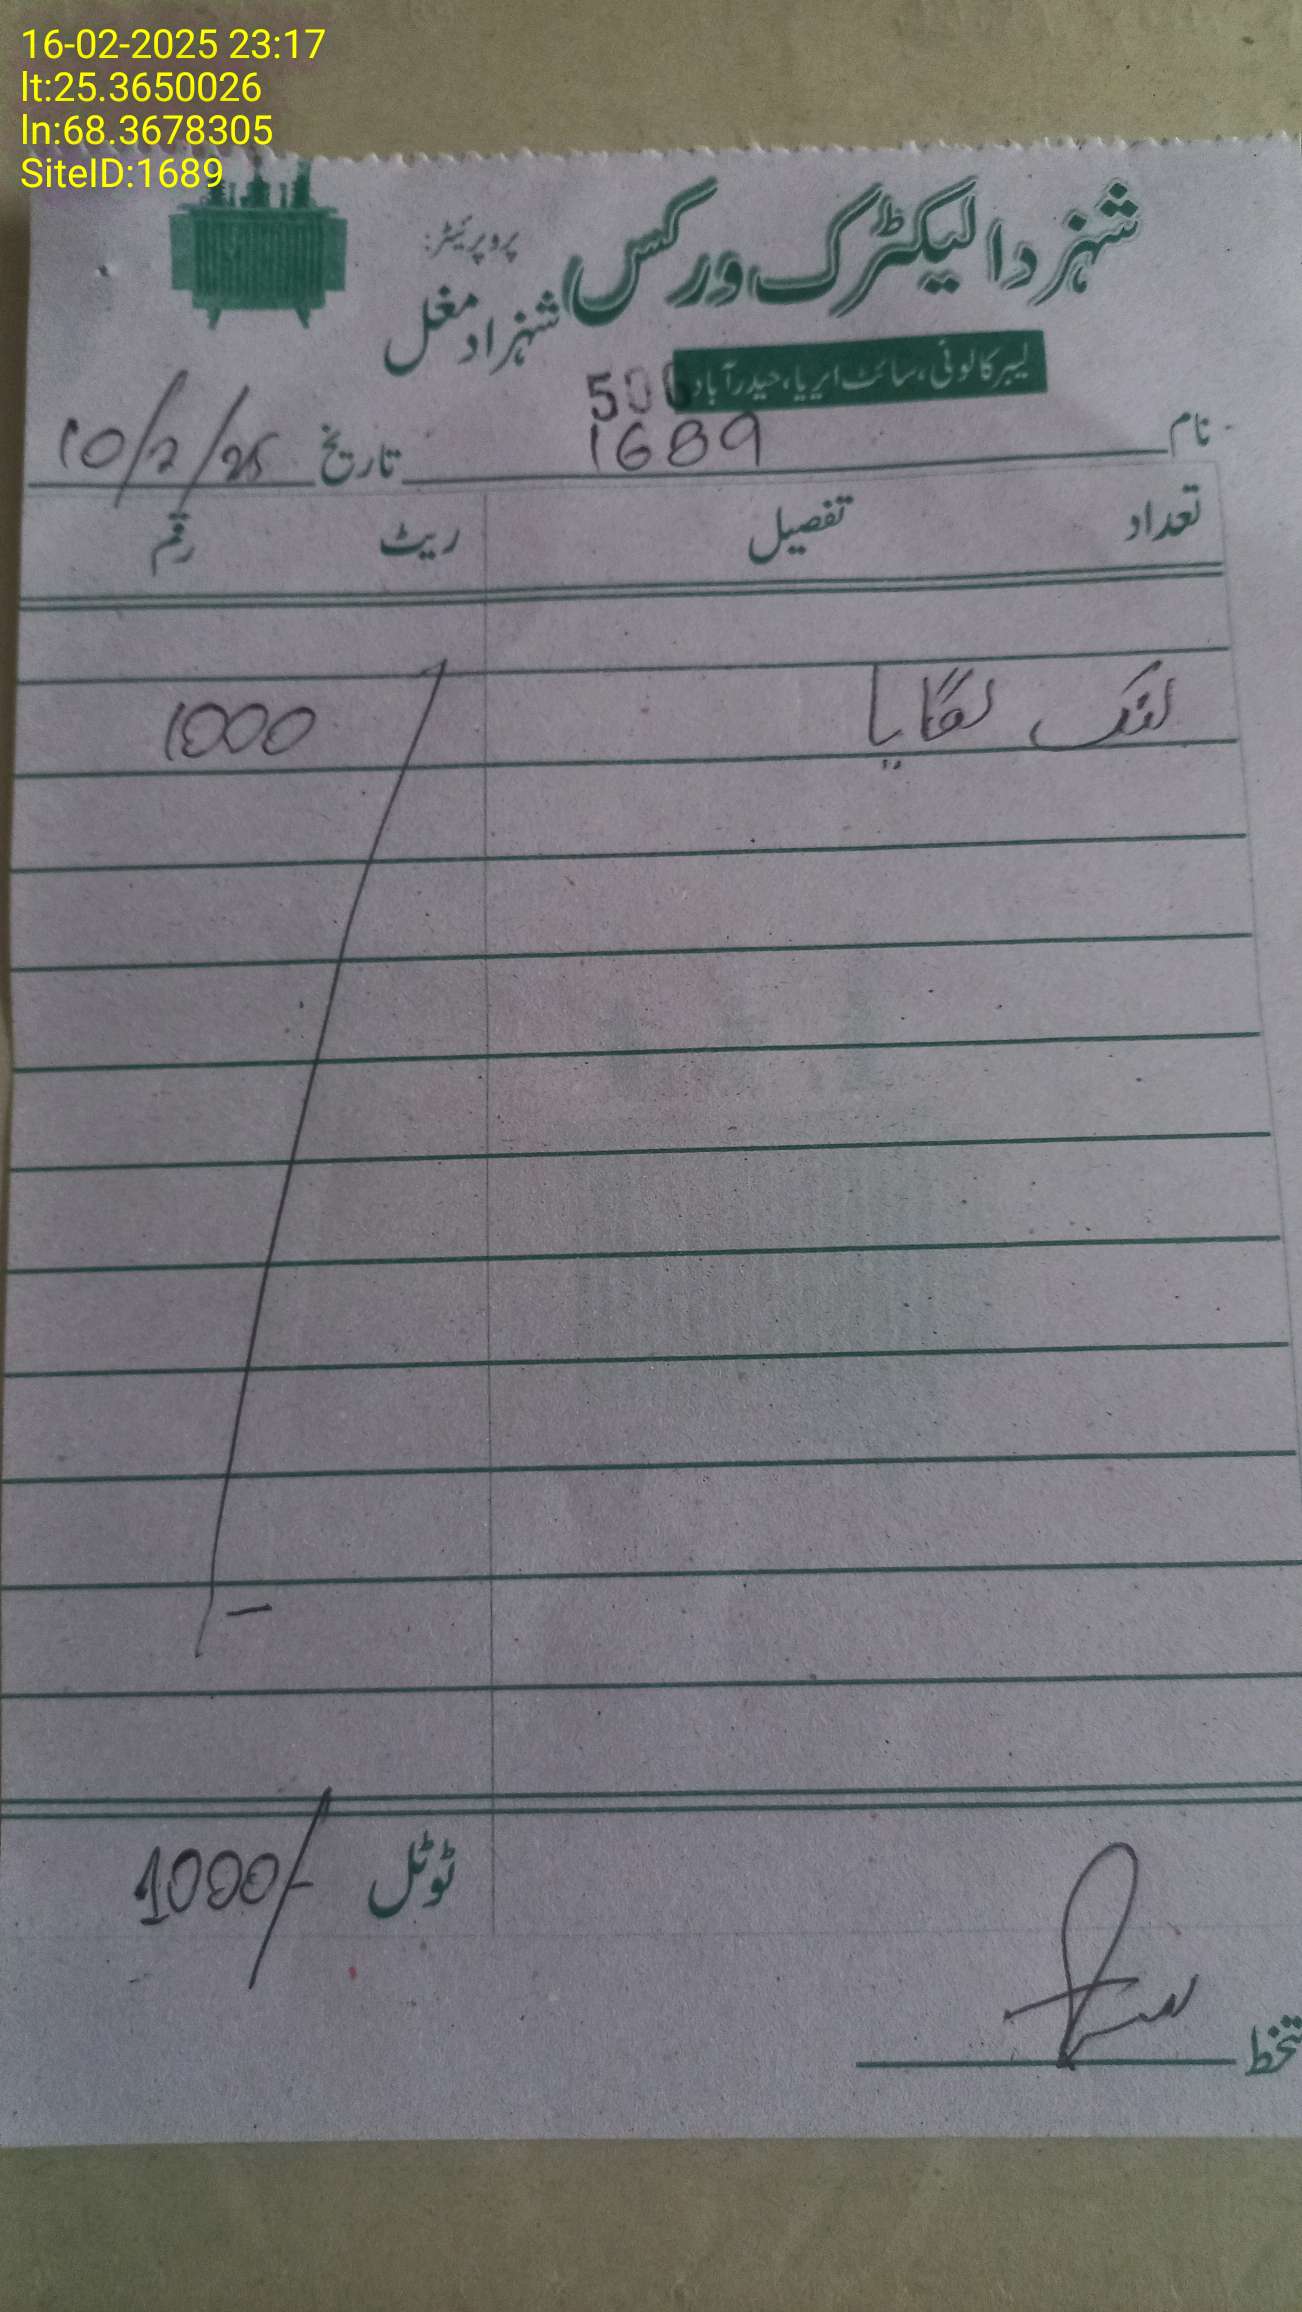 16-02-2025 23:17
lt:25.3650026
ln:68.3678305
SiteID:1689
شہزادالیکٹرک ورکس
پروپرائیٹر:
شہزاد مغل
لیبر کالونی، سائٹ ایریا، حیدرآباد
500
نام 1689 تاریخ 10/2/25
تعداد تفصیل ریٹ رقم
لنک لگایا 1000
ٹوٹل 1000/-
تخط